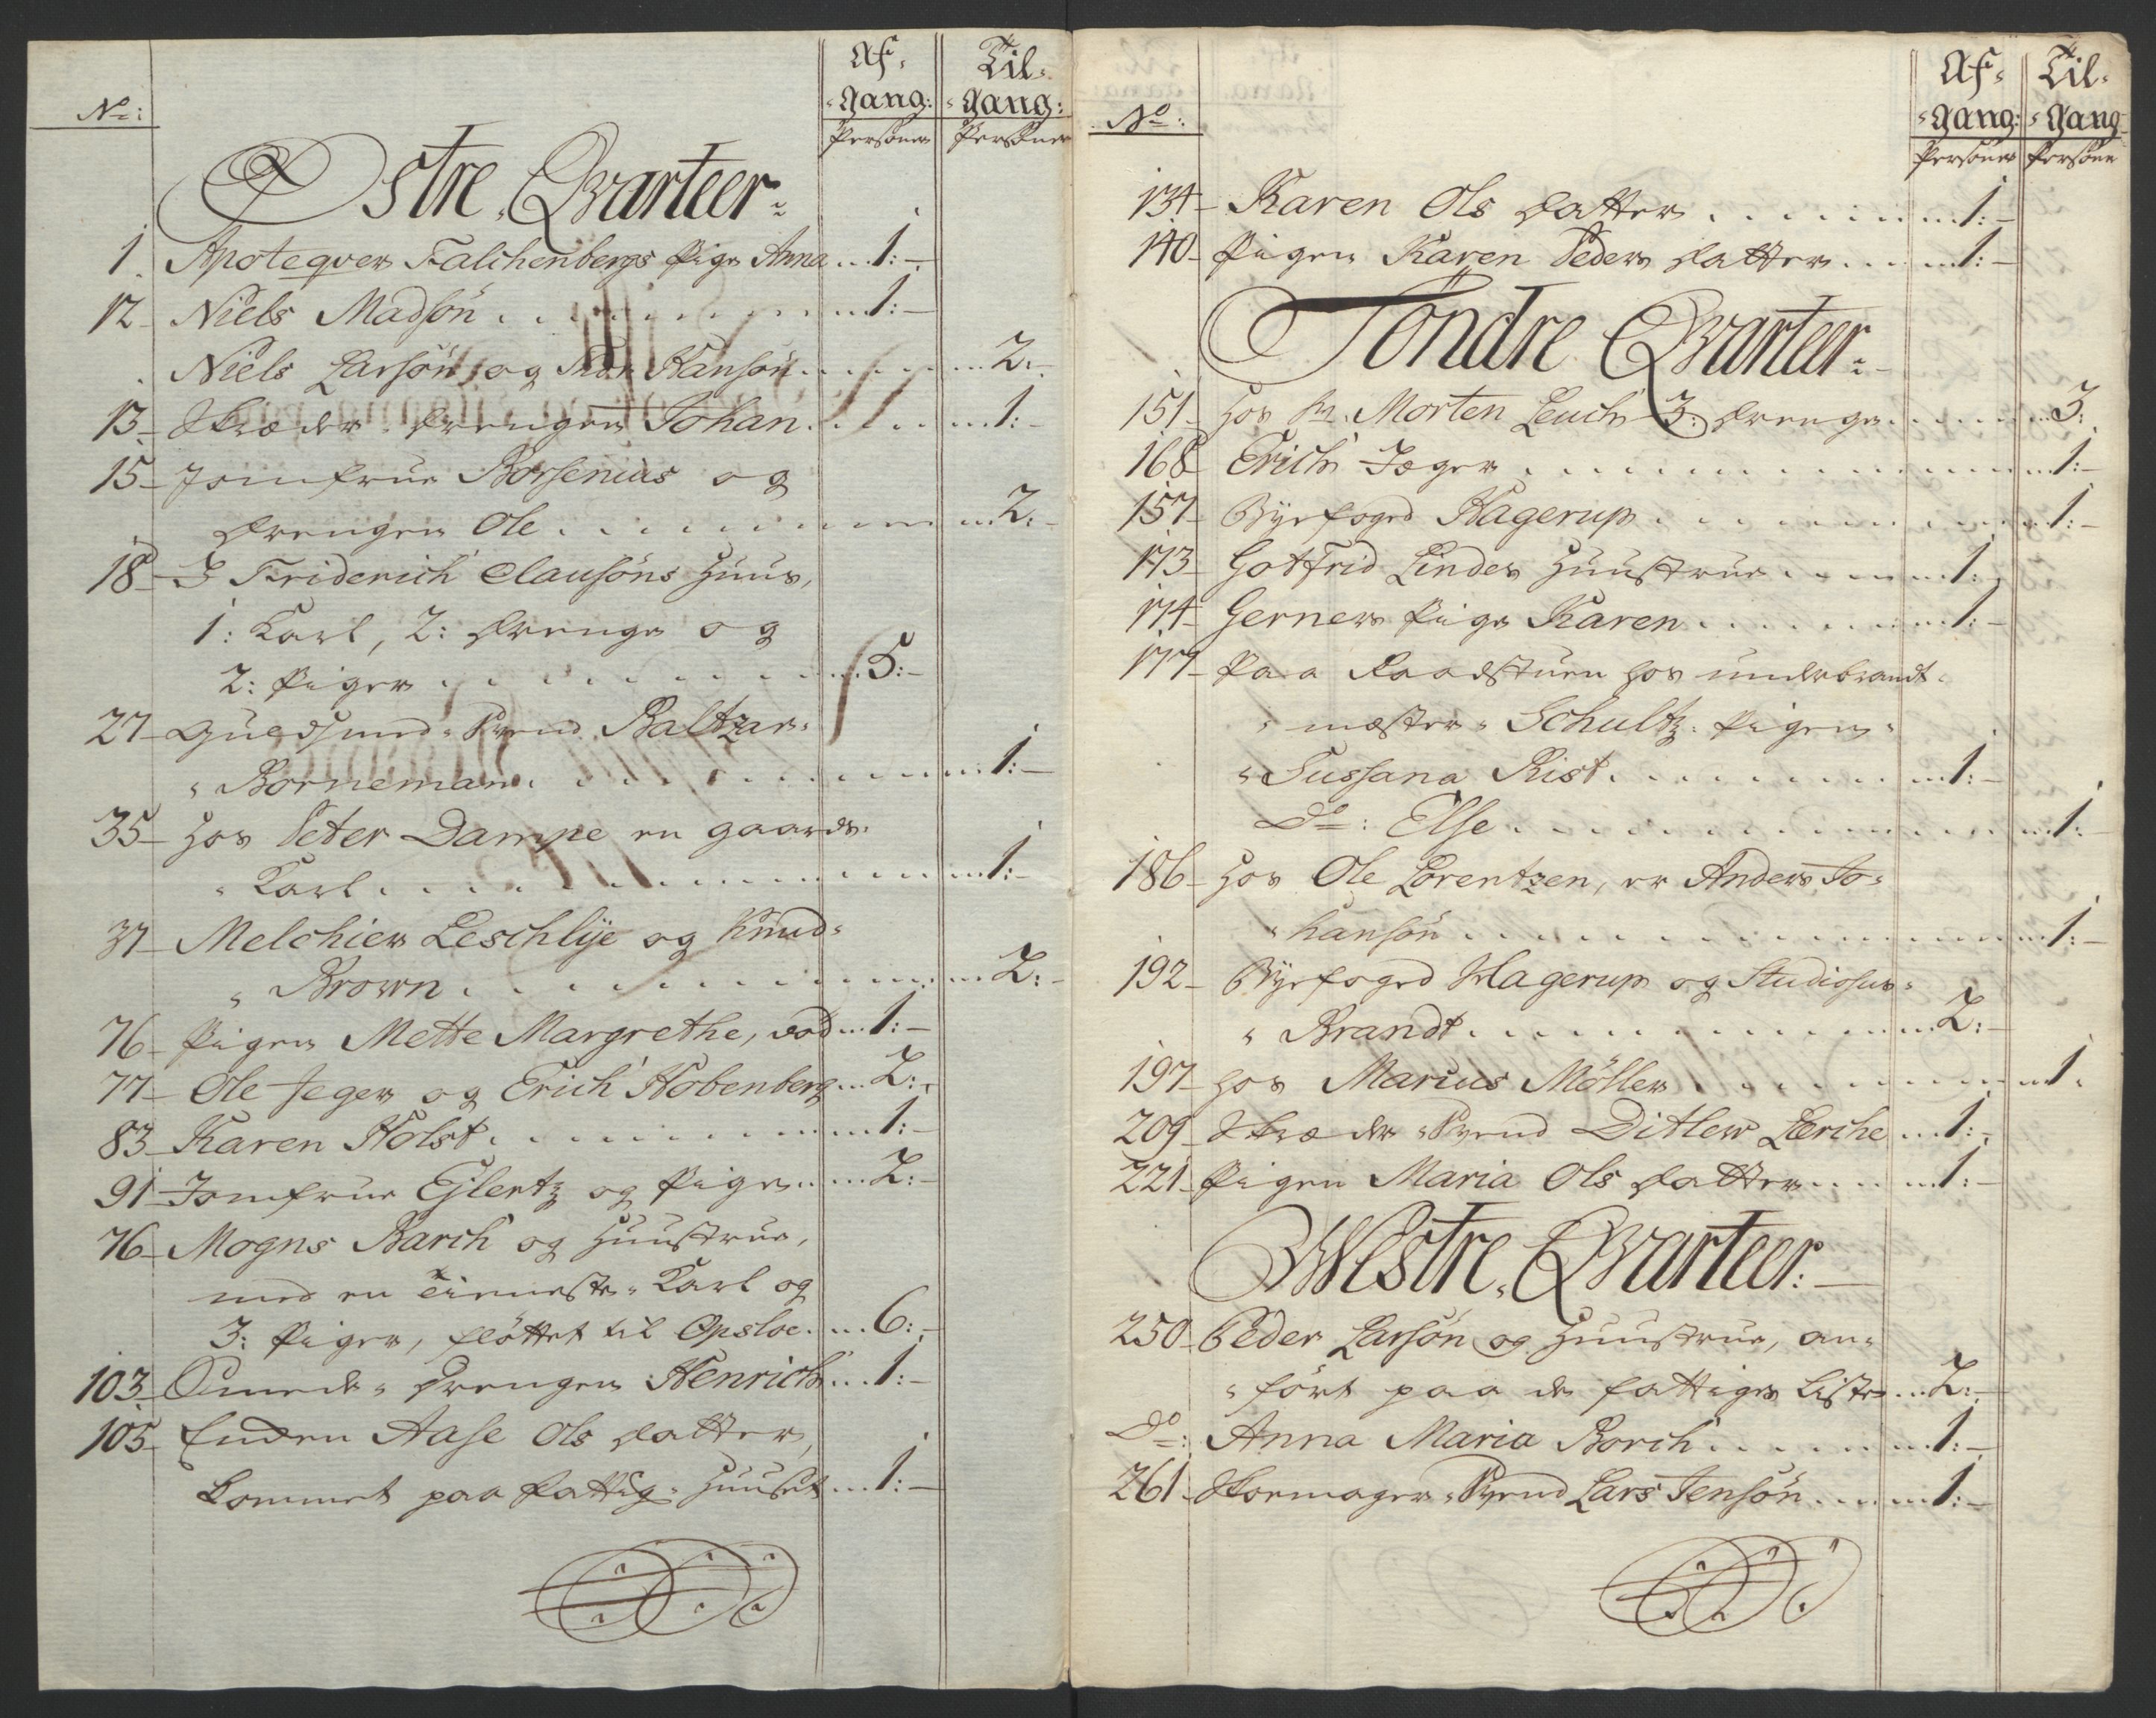 No:
Af-
-gang:
Personer
Til-
-gang:
Personer
Østre Qvarteer
1 Apoteqver Falchenbergs Pige Anna ... 1:
12 Niels Madsön ... 1:
Niels Larsön og Hansön ... 2:
13 Skræder-Drengen Johan ... 1:
15 Jomfrue Borsenius og
Drengen Ole ... 2:
18 I Friderich Clausöns Huus,
1: Karl, 2: Drenge og
2: Piger ... 5:
27 Guldsmed-Svend Baltzar
Bornemann ... 1:
35 Hos Peter Dampe en gaards-
Karl ... 1:
37 Melchier Leschlye og Knud
Brown ... 2:
76 Pigen Mette Margrethe, död ... 1:
77 Ole Jeger og Erich Kobenberg ... 2:
83 Karen Holst ... 1:
91 Jomfrue Ejlertz og Pige ... 2:
76 Mogns Barch og Huustrue,
med en Tieneste-Karl og
3: Piger, flöttet til Opsloe ... 6:
103 Smede-Drengen Henrich ... 1:
105 Enken Aase Ols Datter,
kommet paa Fattig-Huuset ... 1:
No:
Af-
-gang:
Personer
Til-
-gang
Persone
134 Karen Ols Datter ... 1:
140 Pigen Karen Peders Datter ... 1:
Söndre Qvarteer
151 Hos Hr. Morten Leuch 3: Drenge ... 3:
168 Erich Jæger ... 1:
157 Byefoged Hagerup ... 1:
173 Gotfrid Lindes Huustrue ... 1:
174 Gerners Pige Karen ... 1:
177 Paa Raadstuen hos underbrandt-
mæster Schultz: Pigen
Sussana Rist ... 1:
Do: Else ... 1:
186 Hos Ole Lorentzen, er Anders Jo-
hansön ... 1:
192 Byefoged Hagerup og Studiosus
Brandt ... 2:
197 Hos Marcus Möller ... 1
209 Skræder-Svend Ditlew Lerche ... 1:
221 Pigen Maria Ols Datter ... 1:
Westre Qvarteer:
250 Peder Larsön og Huustrue, an-
fört paa de fattiges Liste ... 2:
Do: Anna Maria Borch ... 1:
261 Skomager-Svend Lars Jensön ... 1: